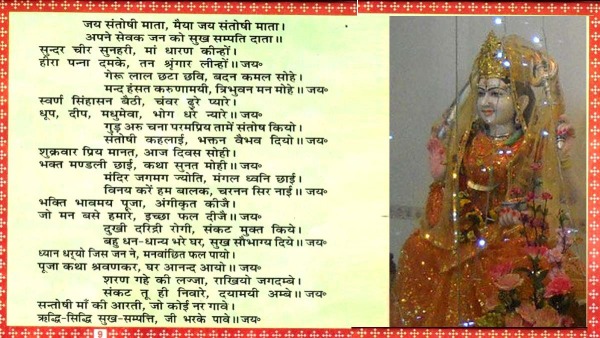 जय संतोषी माता, मैया जय संतोषी माता।
अपने सेवक जन को सुख सम्पति दाता॥
सुन्दर चीर सुनहरी, मां धारण कीन्हों।
हीरा पन्ना दमके, तन श्रृंगार लीन्हों॥जय॰
गेरू लाल छटा छवि, बदन कमल सोहे।
मन्द हंसत करुणामयी, त्रिभुवन मन मोहे॥जय॰
स्वर्ण सिंहासन बैठी, चंवर ढुरे प्यारे।
धूप, दीप, मधुमेवा, भोग धरें न्यारे॥जय॰
गुड़ अरु चना परमप्रिय तामें संतोष कियो।
संतोषी कहलाई, भक्तन वैभव दियो॥जय॰
शुक्रवार प्रिय मानत, आज दिवस सोही।
भक्त मण्डली छाई, कथा सुनत मोही॥जय॰
मंदिर जगमग ज्योति, मंगल ध्वनि छाई।
विनय करें हम बालक, चरनन सिर नाई॥जय॰
भक्ति भावमय पूजा, अंगीकृत कीजै।
जो मन बसे हमारे, इच्छा फल दीजै॥जय॰
दुखी दरिद्री रोगी, संकट मुक्त किये।
बहु धन-धान्य भरे घर, सुख सौभाग्य दिये॥जय॰
ध्यान धर्‌यो जिस जन ने, मनवांछित फल पायो।
पूजा कथा श्रवणकर, घर आनन्द आयो॥जय॰
शरण गहे की लज्जा, राखियो जगदम्बे।
संकट तू ही निवारे, दयामयी अम्बे॥जय॰
सन्तोषी माँ की आरती, जो कोई नर गावे।
ऋद्धि-सिद्धि सुख-सम्पत्ति, जी भरके पावे॥जय॰
9